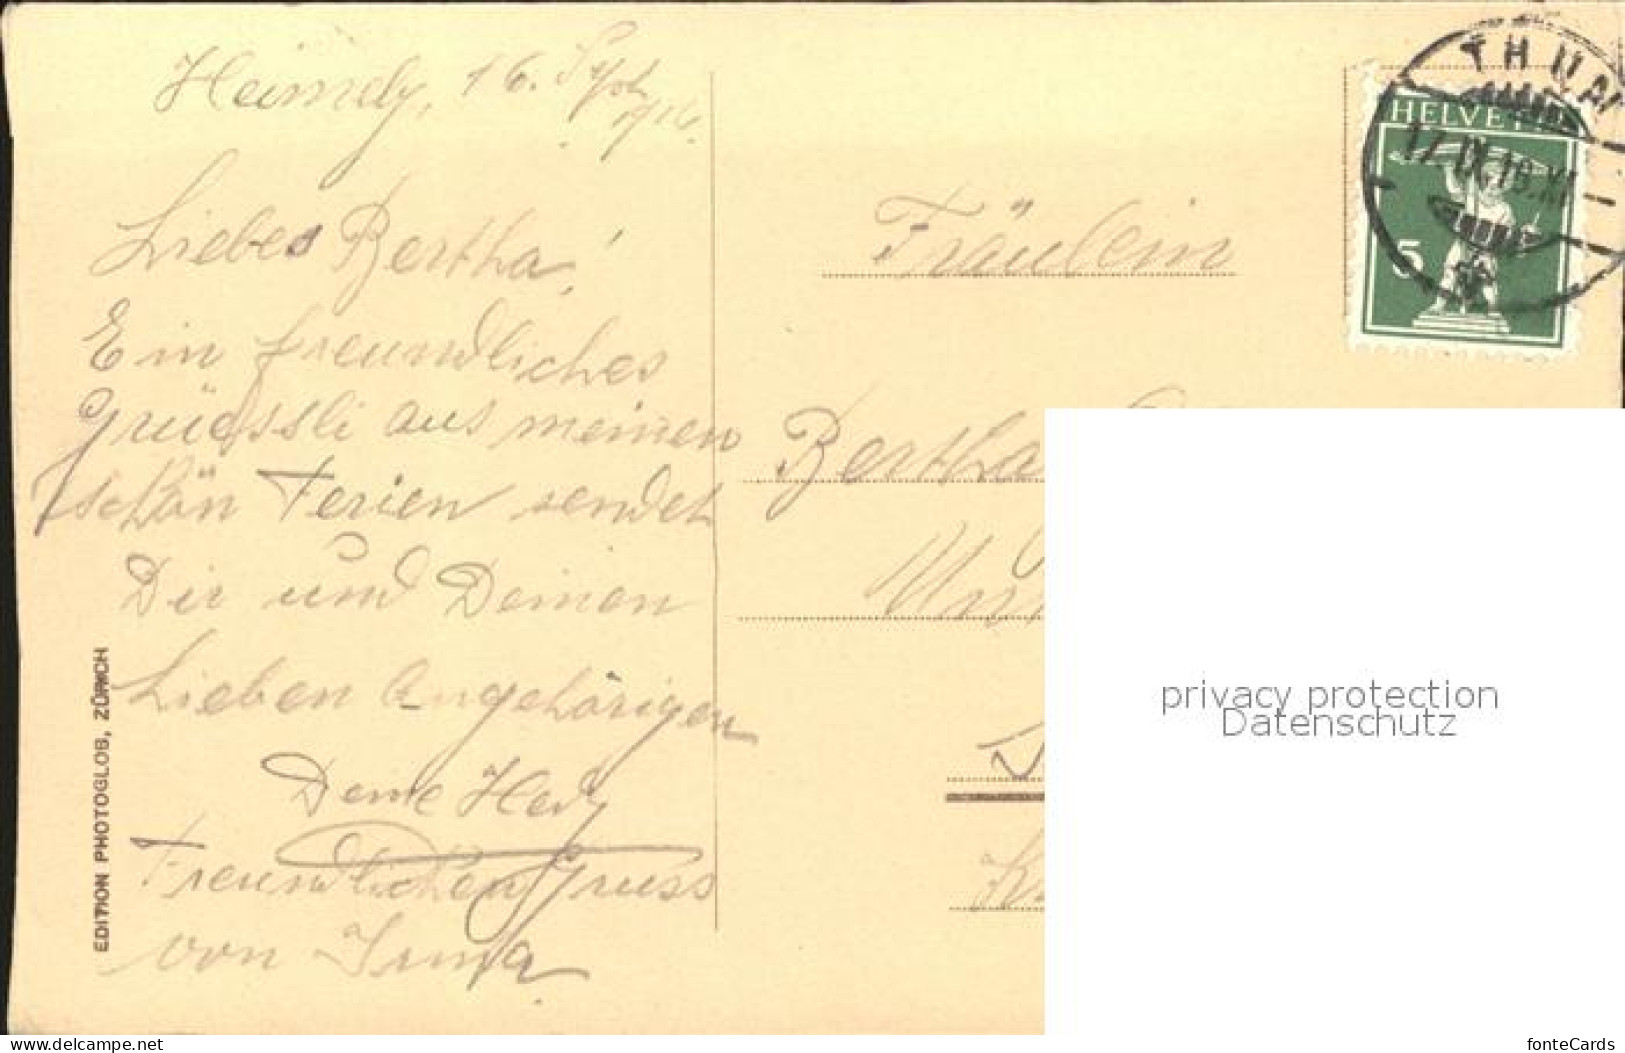 16. Sept.
1916.
Liebes Bertha!
Ein freundliches
Grüessli aus meinen
schön Ferien sendet
Dir und Deinen
Lieben Angehörigen
Deine Hedy
Freundlichen Gruss
von Irma.
EDITION PHOTOGLOB, ZÜRICH
Fräulein
Bertha
THUN
HELVETIA
5
privacy protection
Datenschutz
www.delcampe.net
fonteCards